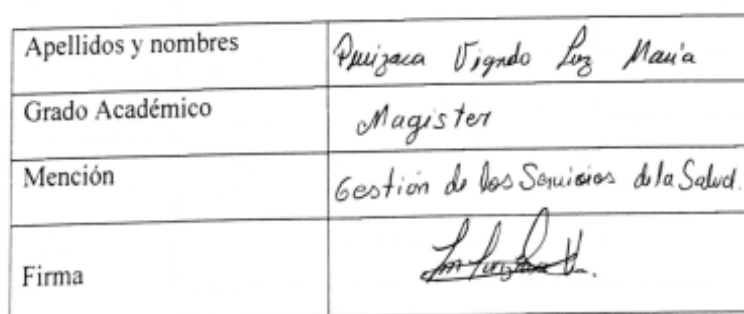 Apellidos y nombres Luz María
Grado Académico Magister
Mención Gestión de los Servicios de la Salud.
Firma